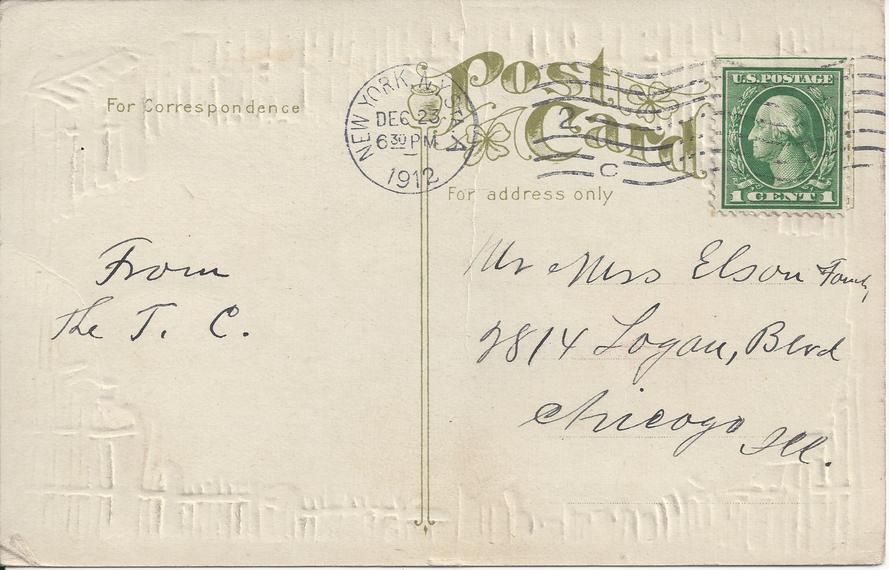 Post
Card
For Correspondence
For address only
NEW YORK, N.Y. STA. X
DEC 23
6 30 PM
1912
2
C
U.S. POSTAGE
1 CENT 1
From
The T. C.
Mr Mrs Elson Family
2814 Logan, Blvd
Chicago
Ill.